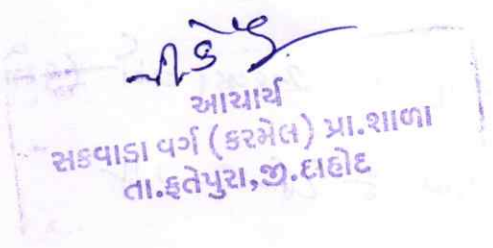 આચાર્ય
સકવાડા વર્ગ (કરમેલ) પ્રા.શાળા
તા.ફતેપુરા,જી.દાહોદ